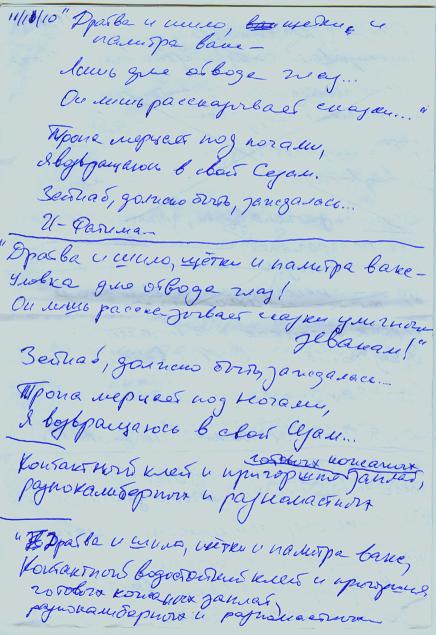 11/11/10 "Дратва и шило, щётки, и
палитра вакс –
Лишь для отвода глаз...
Он лишь рассказывает сказки..."
Тропа мерцает под ногами,
Я возвращаюсь в свой Сезам.
Зейнаб, должно быть, заждалась...
И – Фатима –
"Дратва и шило, щётки и палитра вакс –
Уловка для отвода глаз!
Он лишь рассказывает сказки уличным
зевакам!"
Зейнаб, должно быть, заждалась...
Тропа мерцает под ногами,
Я возвращаюсь в свой Сезам...
готовых кожаных
Контактный клей и пригоршня заплат,
разнокалиберных и разномастных
"Дратва и шило, щётки и палитра вакс,
Контактный водостойкий клей и пригоршня
готовых кожаных заплат,
разнокалиберных и разномастных